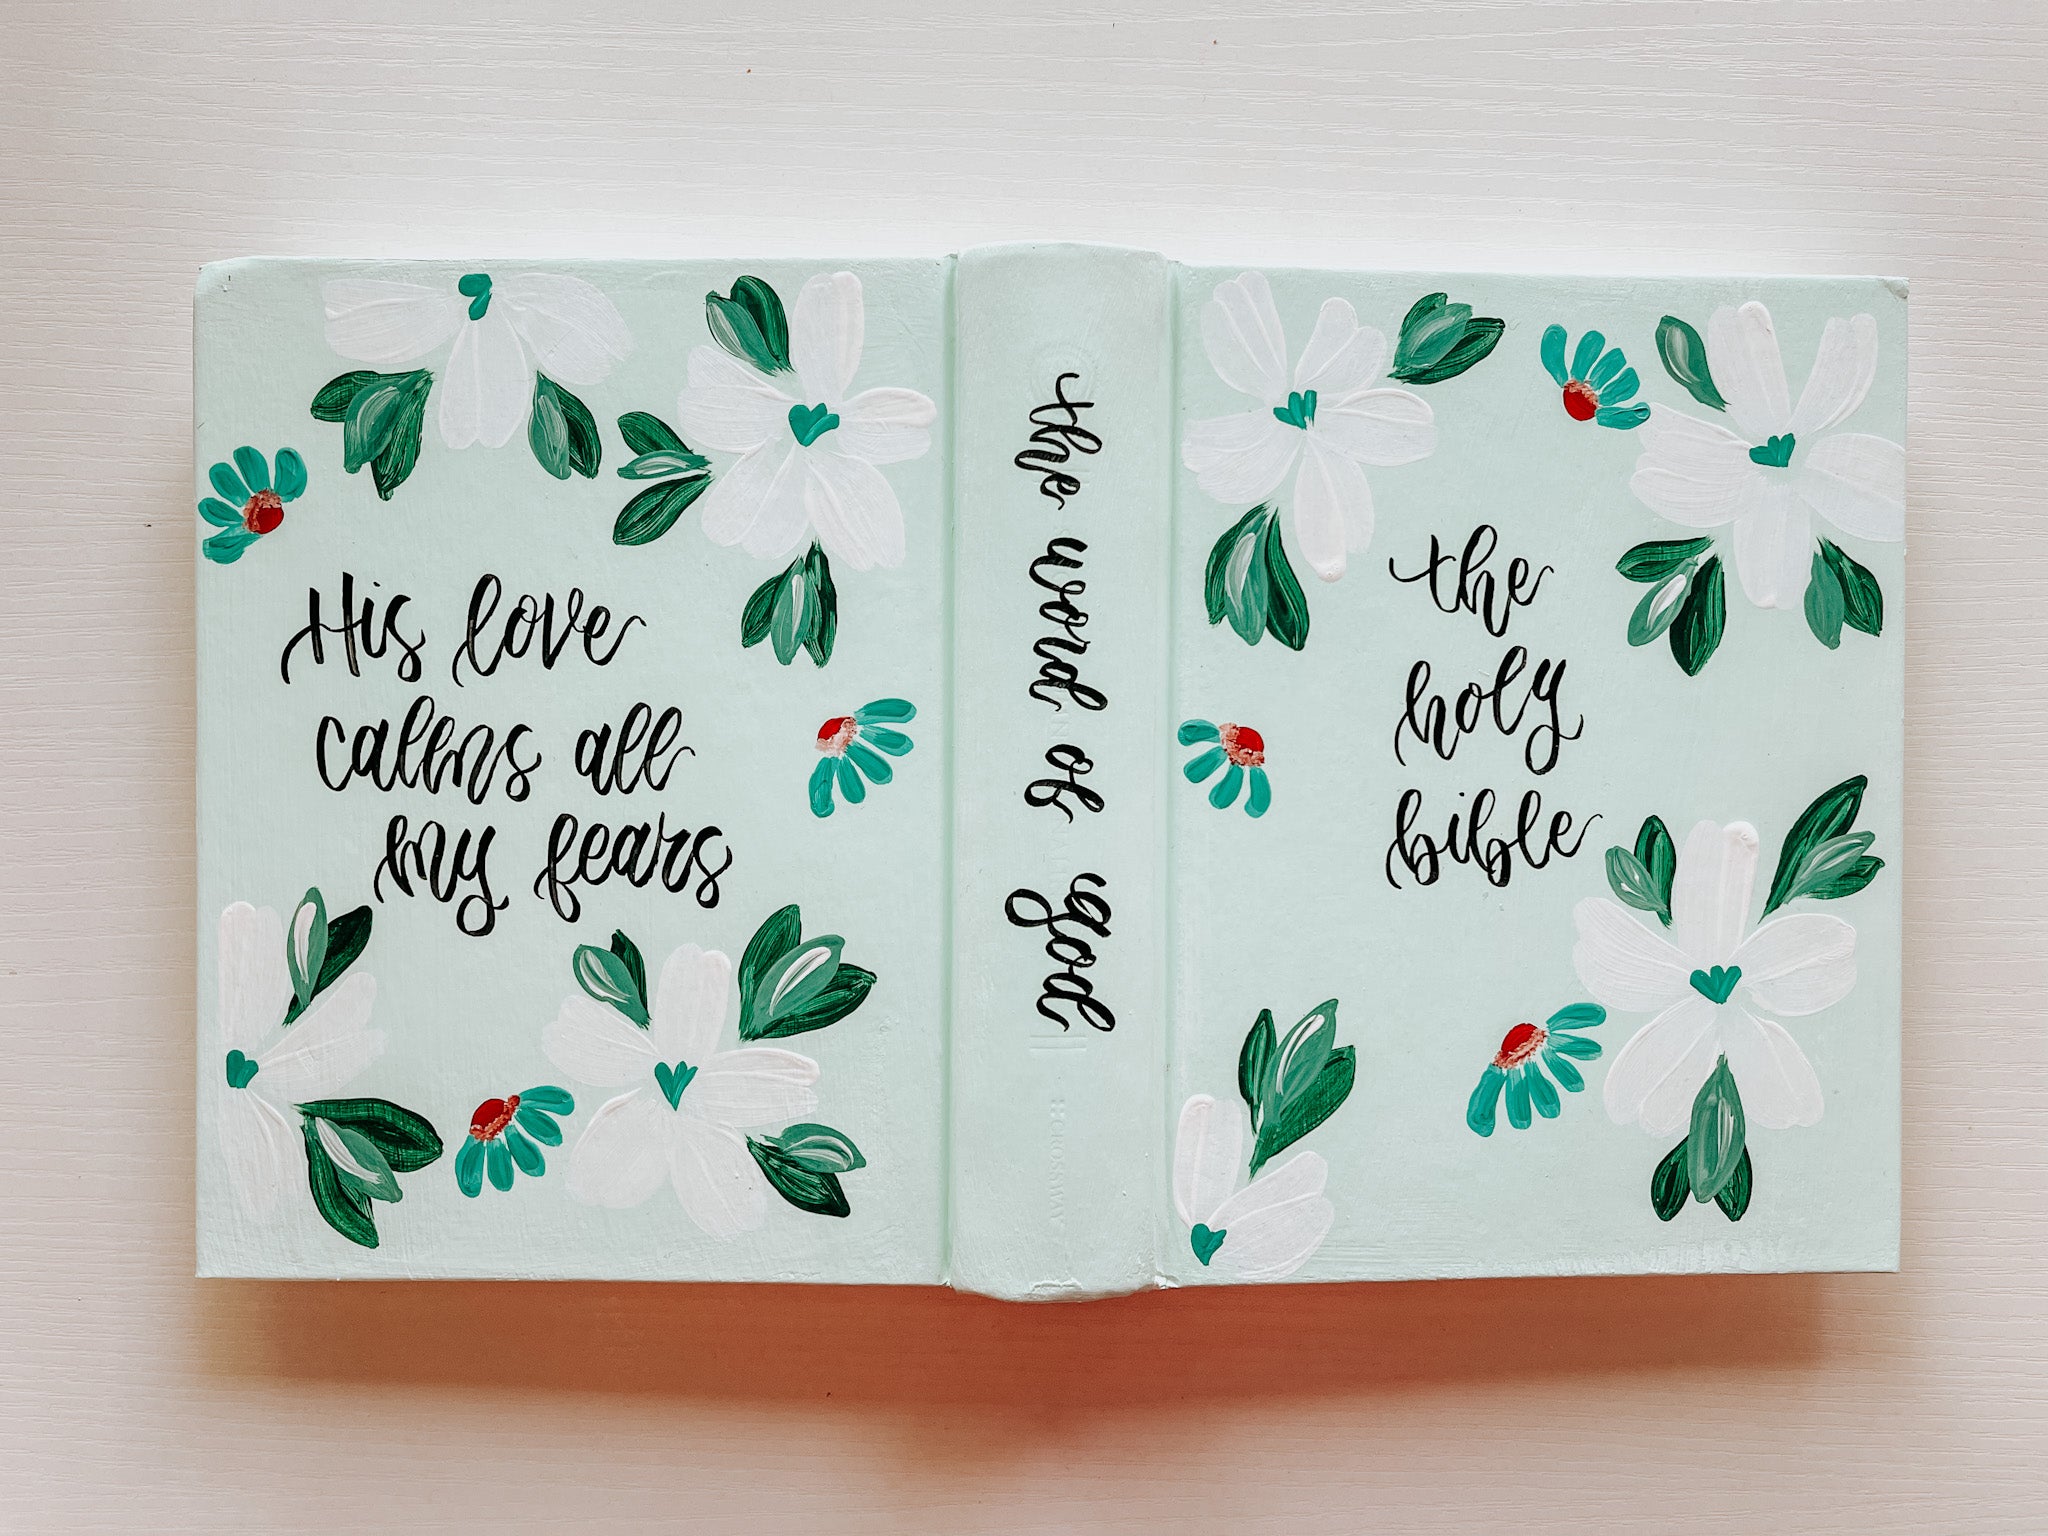 His love
calms all
my fears
the word of god
the
holy
bible
CROSSWAY